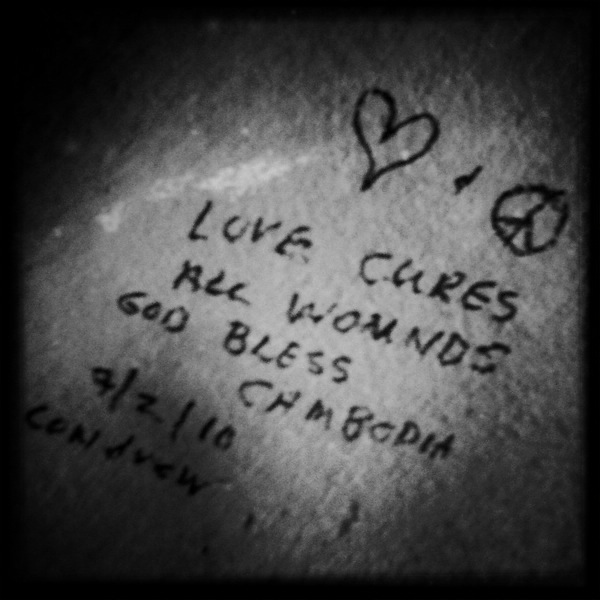 LOVE CURES
ALL WOUNDS
GOD BLESS
CAMBODIA
7/2/10